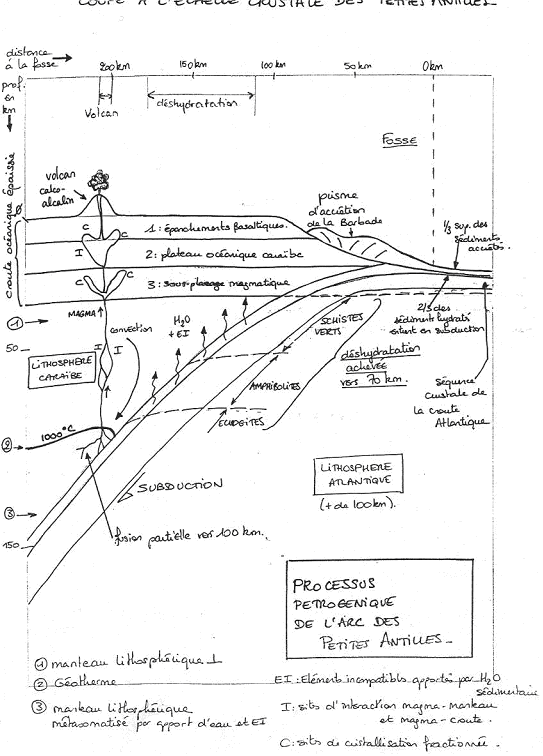 COUPE A L'ECHELLE CRUSTALE DES PETITES ANTILLES
distance
à la fosse
200 km
150 km
100 km
50 km
0 km
prof.
en
km
Volcan
déshydratation
FOSSE
croute océanique épaissie
volcan
calco-
alcalin
prisme
d'accrétion
de la Barbade
1/3 sup. des
sédiments
accrétés.
0
C
C
I
1: épanchements basaltiques.
2: plateau océanique caraïbe
C
C
3: sous-placage magmatique
MAGMA
①
convection
H2O
+ EI
SCHISTES
VERTS
2/3 des
sédiments hydratés
entrent en subduction
50
I
I
LITHOSPHERE
CARAÏBE
déshydratation
achevée
vers 70 km.
AMPHIBOLITES
séquence
crustale de
la croute
Atlantique
ECLOGITES
②
1000°C
LITHOSPHERE
ATLANTIQUE
(+ de 100km).
SUBDUCTION
③
150
fusion partielle vers 100 km.
PROCESSUS
PETROGENIQUE
DE L'ARC DES
PETITES ANTILLES_
① manteau lithosphérique
② Géotherme
③ manteau lithosphérique
métasomatisé par apport d'eau et EI
EI: Eléments incompatibles apportés par H2O
sédimentaire
I: sites d'interaction magma-manteau
et magma-croute.
C: sites de cristallisation fractionnée.